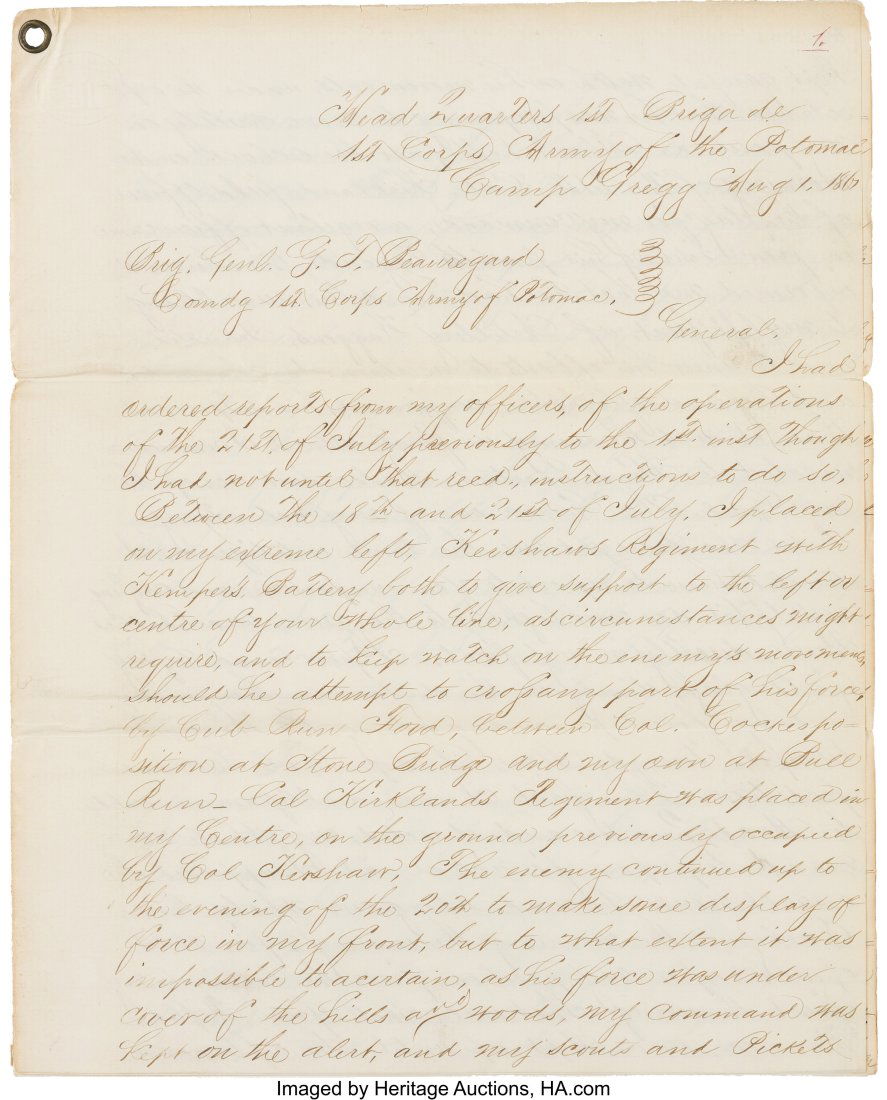 1.
Head Quarters 1st Brigade
1st Corps Army of the Potomac
Camp Gregg Aug 1, 186
Brig. Genl. G. T. Beauregard
Comdg 1st Corps Army of Potomac,
General.
I had
ordered reports from my officers, of the operations
of the 21st, of July previously to the 1st inst though
I had not until that recd., instructions to do so,
Between the 18th and 21st of July, I placed
on my extreme left, Kershaws Regiment with
Kemper's Battery both to give support to the left or
centre of your whole line, as circumstances might
require, and to keep watch on the enemy's movements,
should he attempt to cross any part of his force,
by Cub Run Ford, between Col. Cockes po-
sition at Stone Bridge and my own at Bull
Run - Col Kirklands Regiment was placed in
my Centre, on the ground previously occupied
by Col Kershaw, The enemy continued up to
the evening of the 20th to make some display of
force in my front, but to what extent it was
impossible to acertain, as his force was under
cover of the hills and woods, my command was
kept on the alert, and my scouts and Pickets
Imaged by Heritage Auctions, HA.com